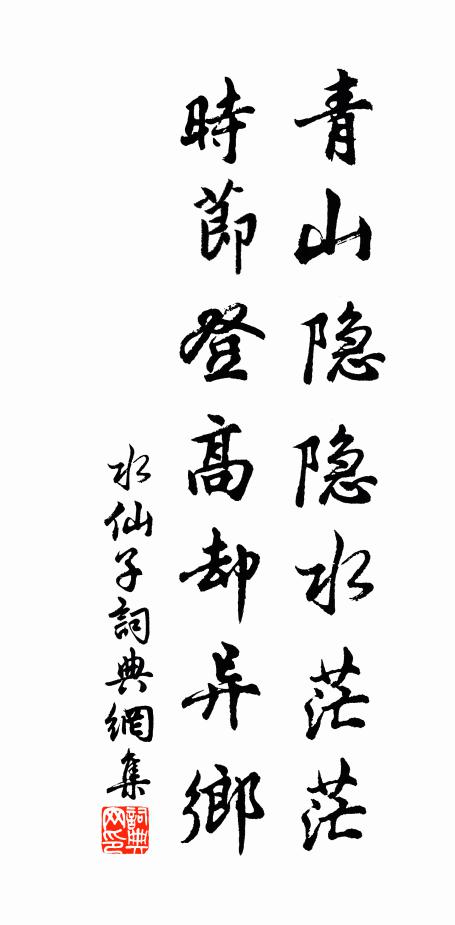 青山隐隐水茫茫
時節登高却异鄉
水仙子詞典網集
詞典
网印